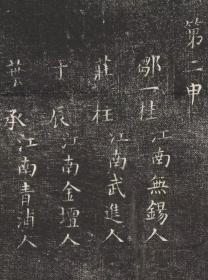 第二甲
鄒一桂江南無錫人
莊柱江南武進人
于辰江南金壇人
葉承江南青浦人